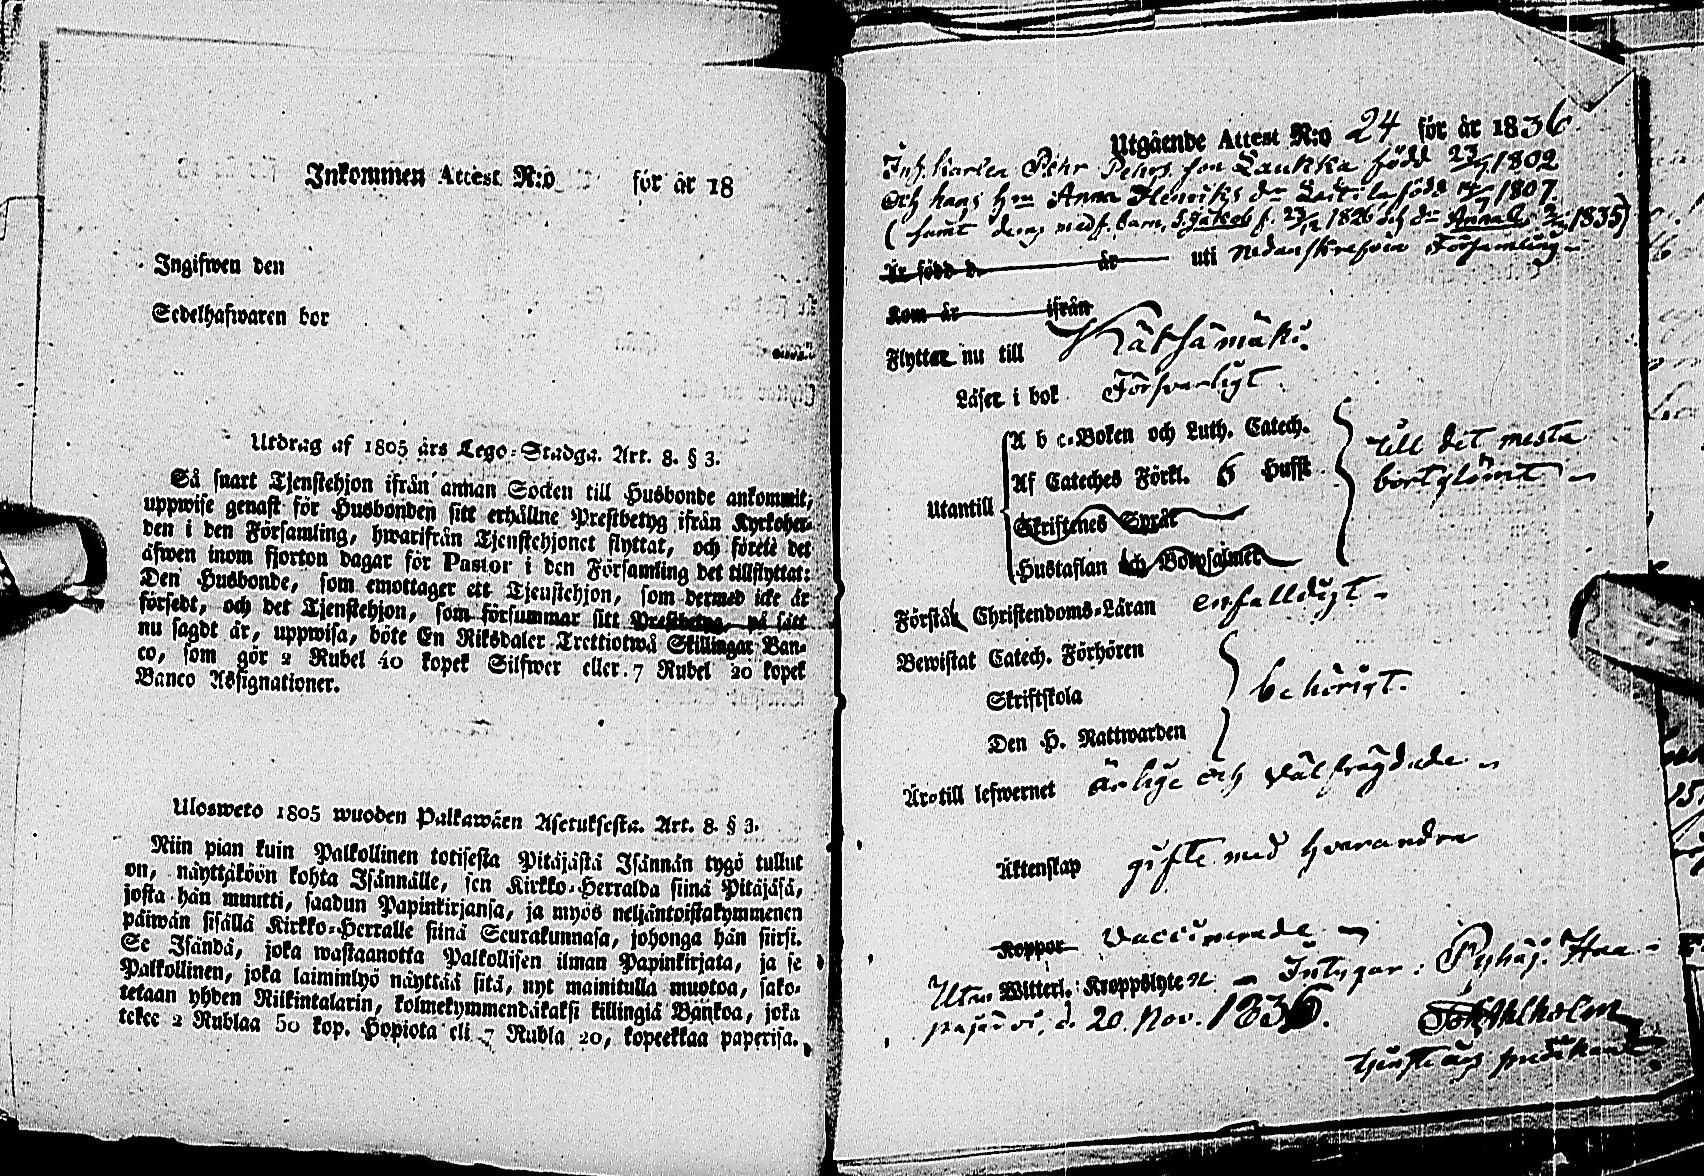 Inkommen Attest N:o för år 18
Ingifwen den
Sedelhafwaren bor
Utdrag af 1805 års Lego-Stadga. Art. 8. § 3.
Så snart Tjenstehjon ifrån annan Socken till Husbonde ankommit,
uppwise genast för Husbonden sitt erhållne Prestbetyg ifrån Kyrkoher-
den i den Församling, hwarifrån Tjenstehjonet flyttat, och förete det
äfwen inom fjorton dagar för Pastor i den Församling det tillflyttat:
Den Husbonde, som emottager ett Tjenstehjon, som dermed icke är
försedt, och det Tjenstehjon, som försummar sitt Prestbetyg på sätt
nu sagdt är, uppwisa, böte En Riksdaler Trettiotwå Skillingar Ban-
co, som gör 2 Rubel 40 kopek Silfwer eller 7 Rubel 20 kopek
Banco Assignationer.
Ulosweto 1805 wuoden Palkawäen Asetuksesta. Art. 8. § 3.
Niin pian kuin Palkollinen totisesta Pitäjästä Isännän tygö tullut
on, näyttäköön kohta Isännälle, sen Kirkko-Herralda siinä Pitäjäsä,
josta hän muutti, saadun Papinkirjansa, ja myös neljäntoistakymmenen
päiwän sisällä Kirkko-Herralle siinä Seurakunnasa, johonga hän siirsi.
Se Isändä, joka wastaanotta Palkollisen ilman Papinkirjata, ja se
Palkollinen, joka laiminlyö näyttää sitä, nyt mainitulla muotoa, sako-
tetaan yhden Riikintalarin, kolmekymmendäkaksi killingiä Bankoa, joka
tekee 2 Rublaa 50 kop. Hopiota eli 7 Rubla 20, kopeekkaa paperisa.
Utgående Attest N:o 24 för år 1836
Inh. Karlen Pehr Pehrs son Laukka född 23/ 1802
och hans Hu Anna Henriks dr Leitila född 1807
(samt deras medf. barn, S. Jakob f. 23/12 1826 och dr Anna 1835)
Är född d. år uti nedanskrefvne Församling
Kom år ifrån
Flyttar nu till Kätsämäki.
Läser i bok Försvarligt
A b c-Boken och Luth. Catech.
Af Cateches Förkl. 6 Hufst
till det mesta
bortglömt
Utantill
Skriftenes Språk
Hustaflan och Botpsalmer
Förstå Christendoms-Läran enfaldigt
Bewistat Catech. Förhören
Skriftskola
behörigt.
Den H. Nattwarden
Äro till lefwernet ärlige och välfrägdade
Äktenskap gifte med hvarandra
Koppor Vaccinerade
Utan Witterl. Kroppslyte Intygar: Pyhäj. Haa-
pajärvi, d. 20. Nov. 1836.
Ahlholm
tjenst. års predikant